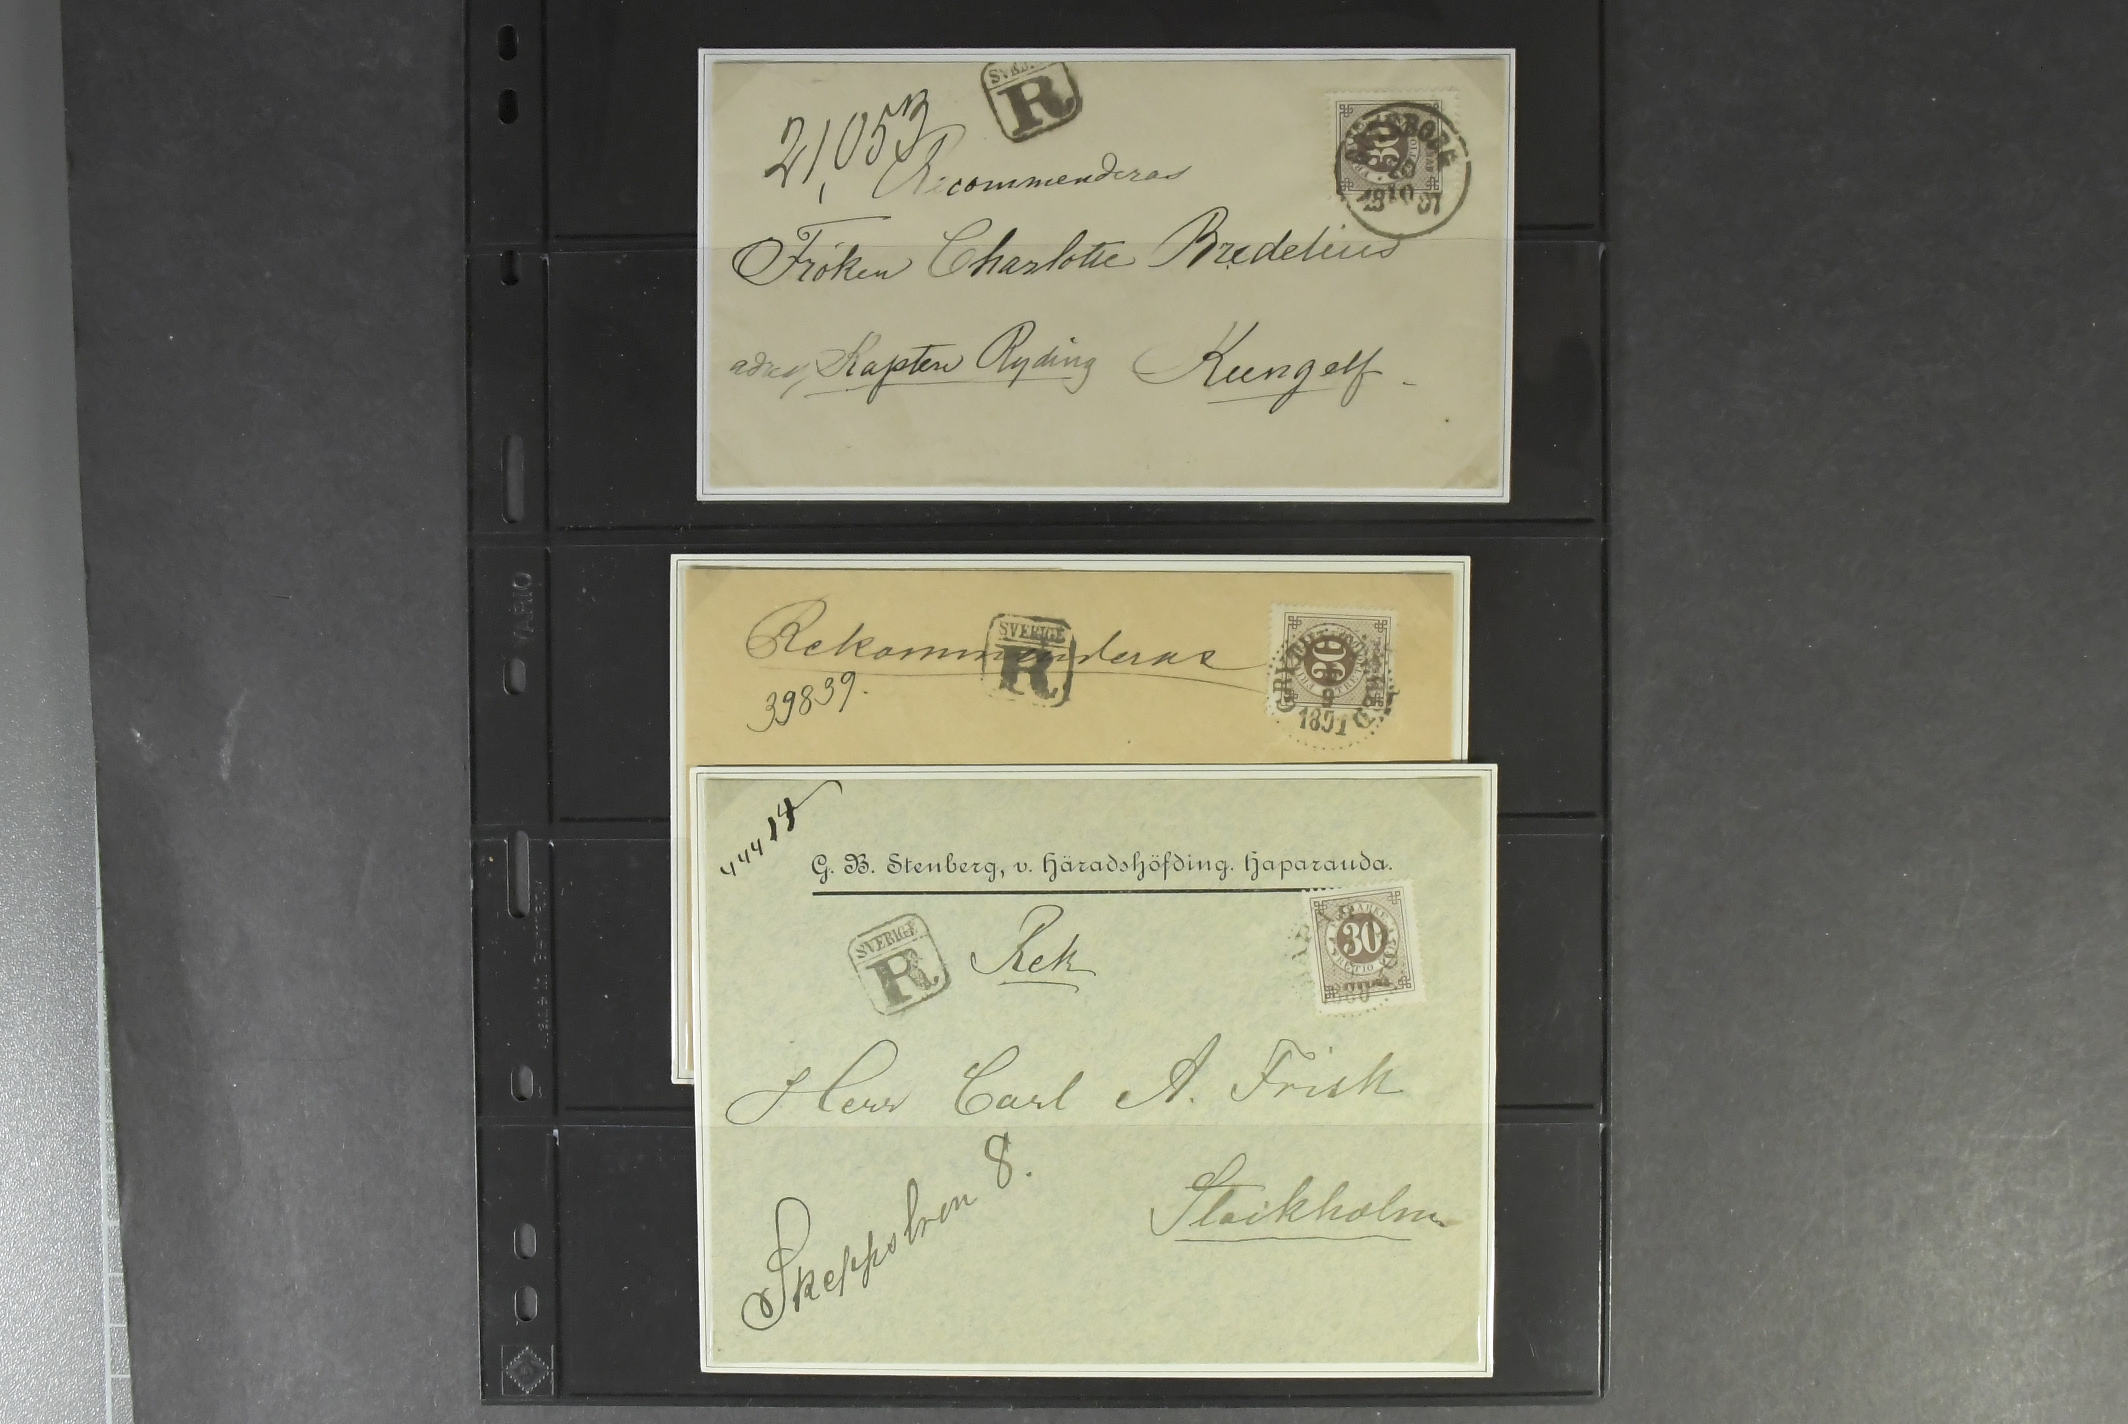 SVERIGE
R
21,053
Recommenderas
30
20
1891
Fröken Charlotte Bredelius
Kapten Ryding Kungelf
VARIO
Rekommenderas
SVERIGE
R
39839.
30
1891
44414
G. B. Stenberg, v. Häradshöfding. Haparanda.
SVERIGE
R
Rek
30
Herr Carl A. Frisk
Skeppsbron 8.
Stockholm